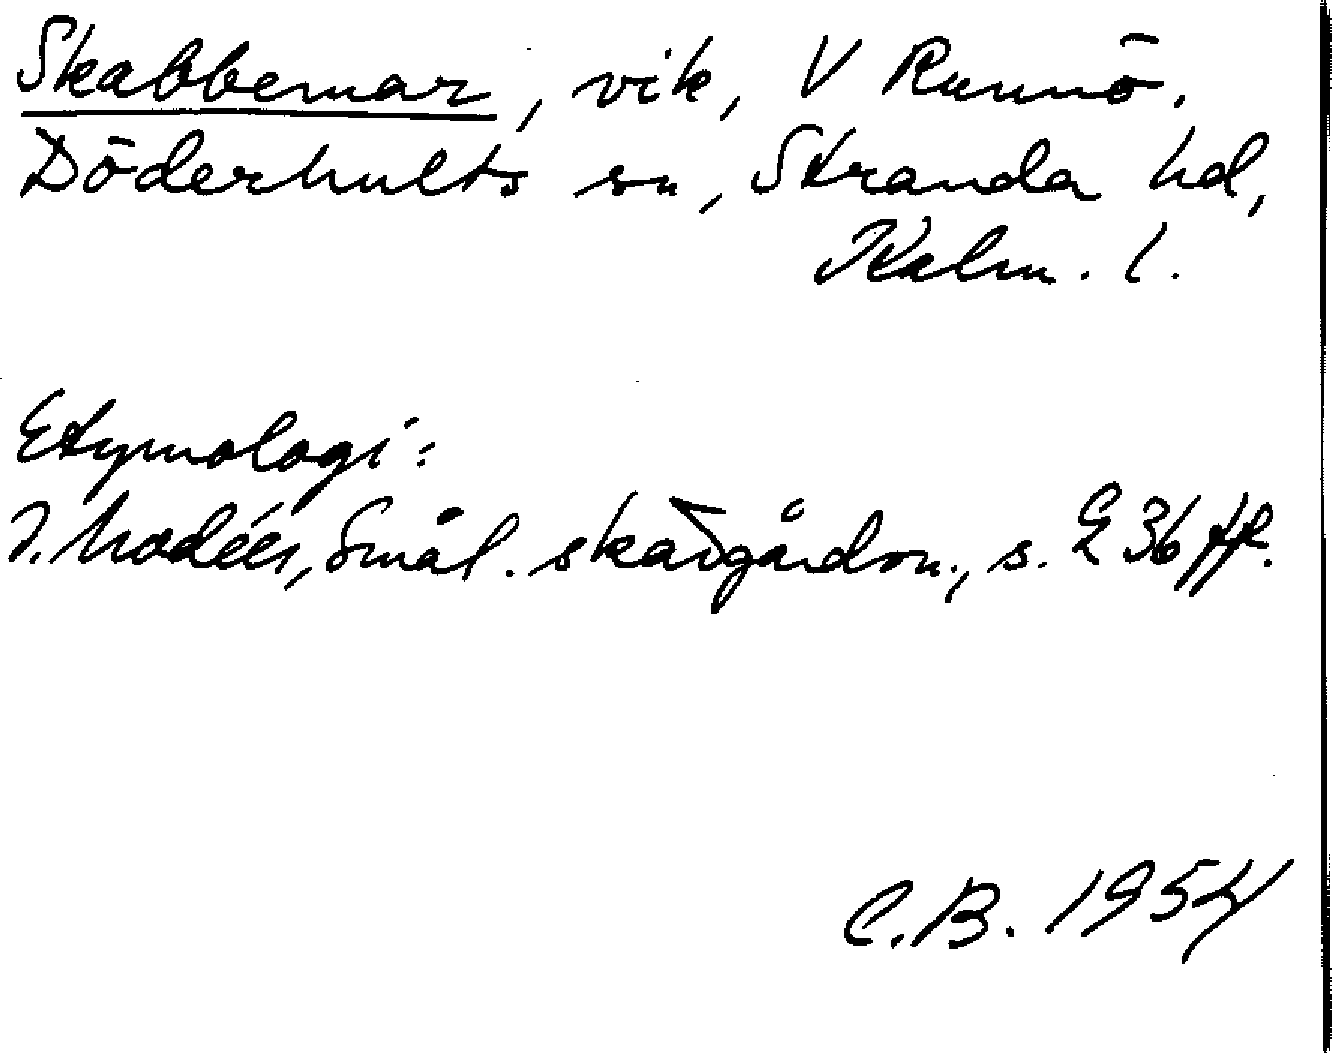 Skabbemar, vik, V Runnö.
Döderhults sn, Stranda hd,
Kalm. l.
Etymologi:
I. Modéer, Smål. skärgårdsn., s. 236 ff.
C.B. 1954